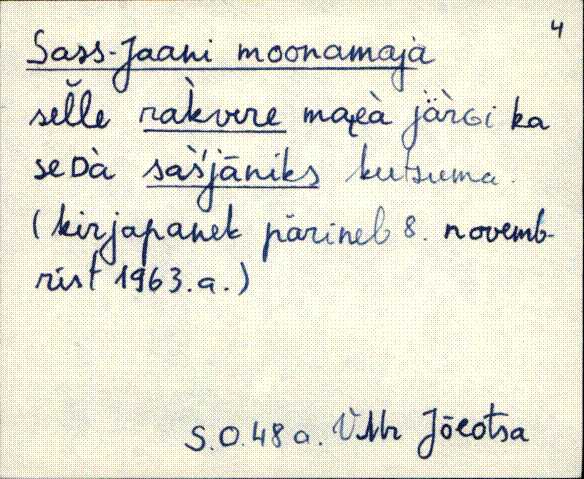 4
Sass-Jaani moonamaja
sel̆le ràkvere maɪ̯à järGi ka
seDà saśjāniks kutsuma.
(kirjapanek pärineb 8. novemb-
rist 1963.a.)
S.O.48 a. VMr Jõeotsa